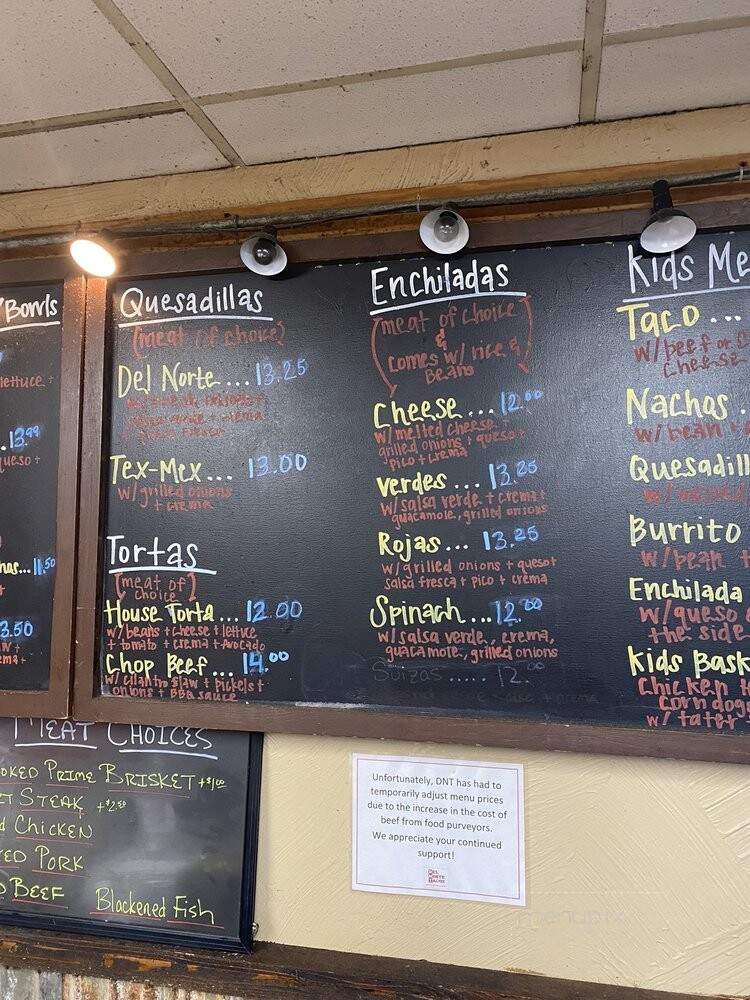 Bowls
lettuce +
13.99
queso +
11.50
3.50
Quesadillas
(meat of choice)
Del Norte ... 13.25
Tex-Mex ... 13.00
w/grilled onions
+ crema
Tortas
(meat of
choice)
House Torta ... 12.00
w/ beans + cheese + lettuce
+ tomato + crema + Avocado
Chop Beef ... 14.00
w/ cilantro slaw + pickels +
onions + BBQ sauce
Enchiladas
(meat of choice
&
comes w/ rice &
Beans)
Cheese ... 12.00
w/ melted cheese +
grilled onions + queso +
pico + crema
Verdes ... 13.25
w/salsa verde + crema +
guacamole, grilled onions
Rojas ... 13.25
w/grilled onions + queso +
salsa fresca + pico + crema
Spinach ... 12.00
w/salsa verde, crema,
guacamole, grilled onions
Suizas ..... 12.
Kids Me
Taco ...
w/beef or
cheese
Nachos
w/ bean +
Quesadill
Burrito
w/ bean +
Enchilada
w/queso
the side
Kids Bask
Chicken
corn dogs
w/ tater
MEAT CHOICES
OKED PRIME BRISKET +$1.00
STEAK +$2.50
CHICKEN
PORK
BEEF
Blackened Fish
Unfortunately, DNT has had to
temporarily adjust menu prices
due to the increase in the cost of
beef from food purveyors.
We appreciate your continued
support!
DEL
NORTE
TACOS
menupix